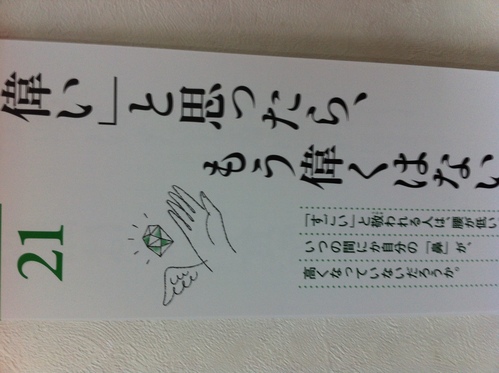 21
偉い」と思ったら、
もう偉くはない
「すごい」と敬われる人は、腰が低い
いつの間にか自分の「鼻」が、
高くなっていないだろうか。